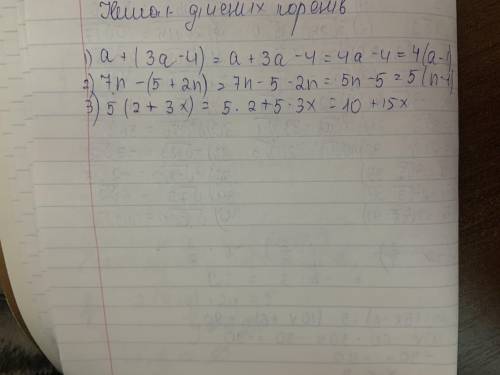 Немає дійсних коренів
1) a + (3a - 4) = a + 3a - 4 = 4a - 4 = 4(a - 1)
2) 7n - (5 + 2n) = 7n - 5 - 2n = 5n - 5 = 5(n - 1)
3) 5(2 + 3x) = 5 · 2 + 5 · 3x = 10 + 15x